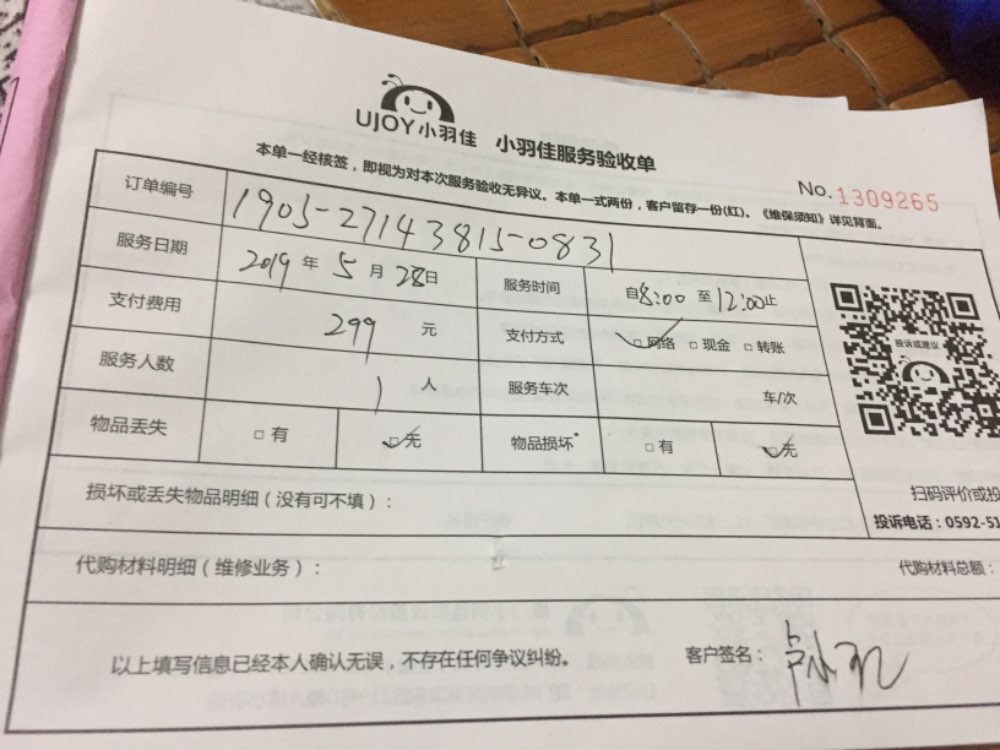 UJOY小羽佳 小羽佳服务验收单
No.1309265
本单一经核签，即视为对本次服务验收无异议。本单一式两份，客户留存一份(红)。《维保须知》详见背面。
订单编号 1905-27143815-0831
服务日期 2019年5月28日 服务时间 自8:00至12:00止
支付费用 299元 支付方式 □网络 □现金 □转账
服务人数 1人 服务车次 车/次
物品丢失 □有 □无 物品损坏* □有 □无
投诉或建议
扫码评价或投
损坏或丢失物品明细（没有可不填）：
投诉电话：0592-51
代购材料明细（维修业务）：
代购材料总额：
以上填写信息已经本人确认无误，不存在任何争议纠纷。 客户签名：